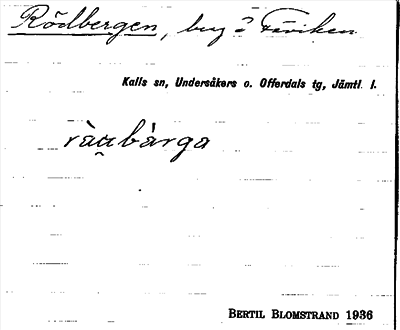 Rödbergen, bug å Fäviken
Kalls sn, Undersåkers o. Offerdals tg, Jämtl. l.
ràu̯bärga
BERTIL BLOMSTRAND 1936